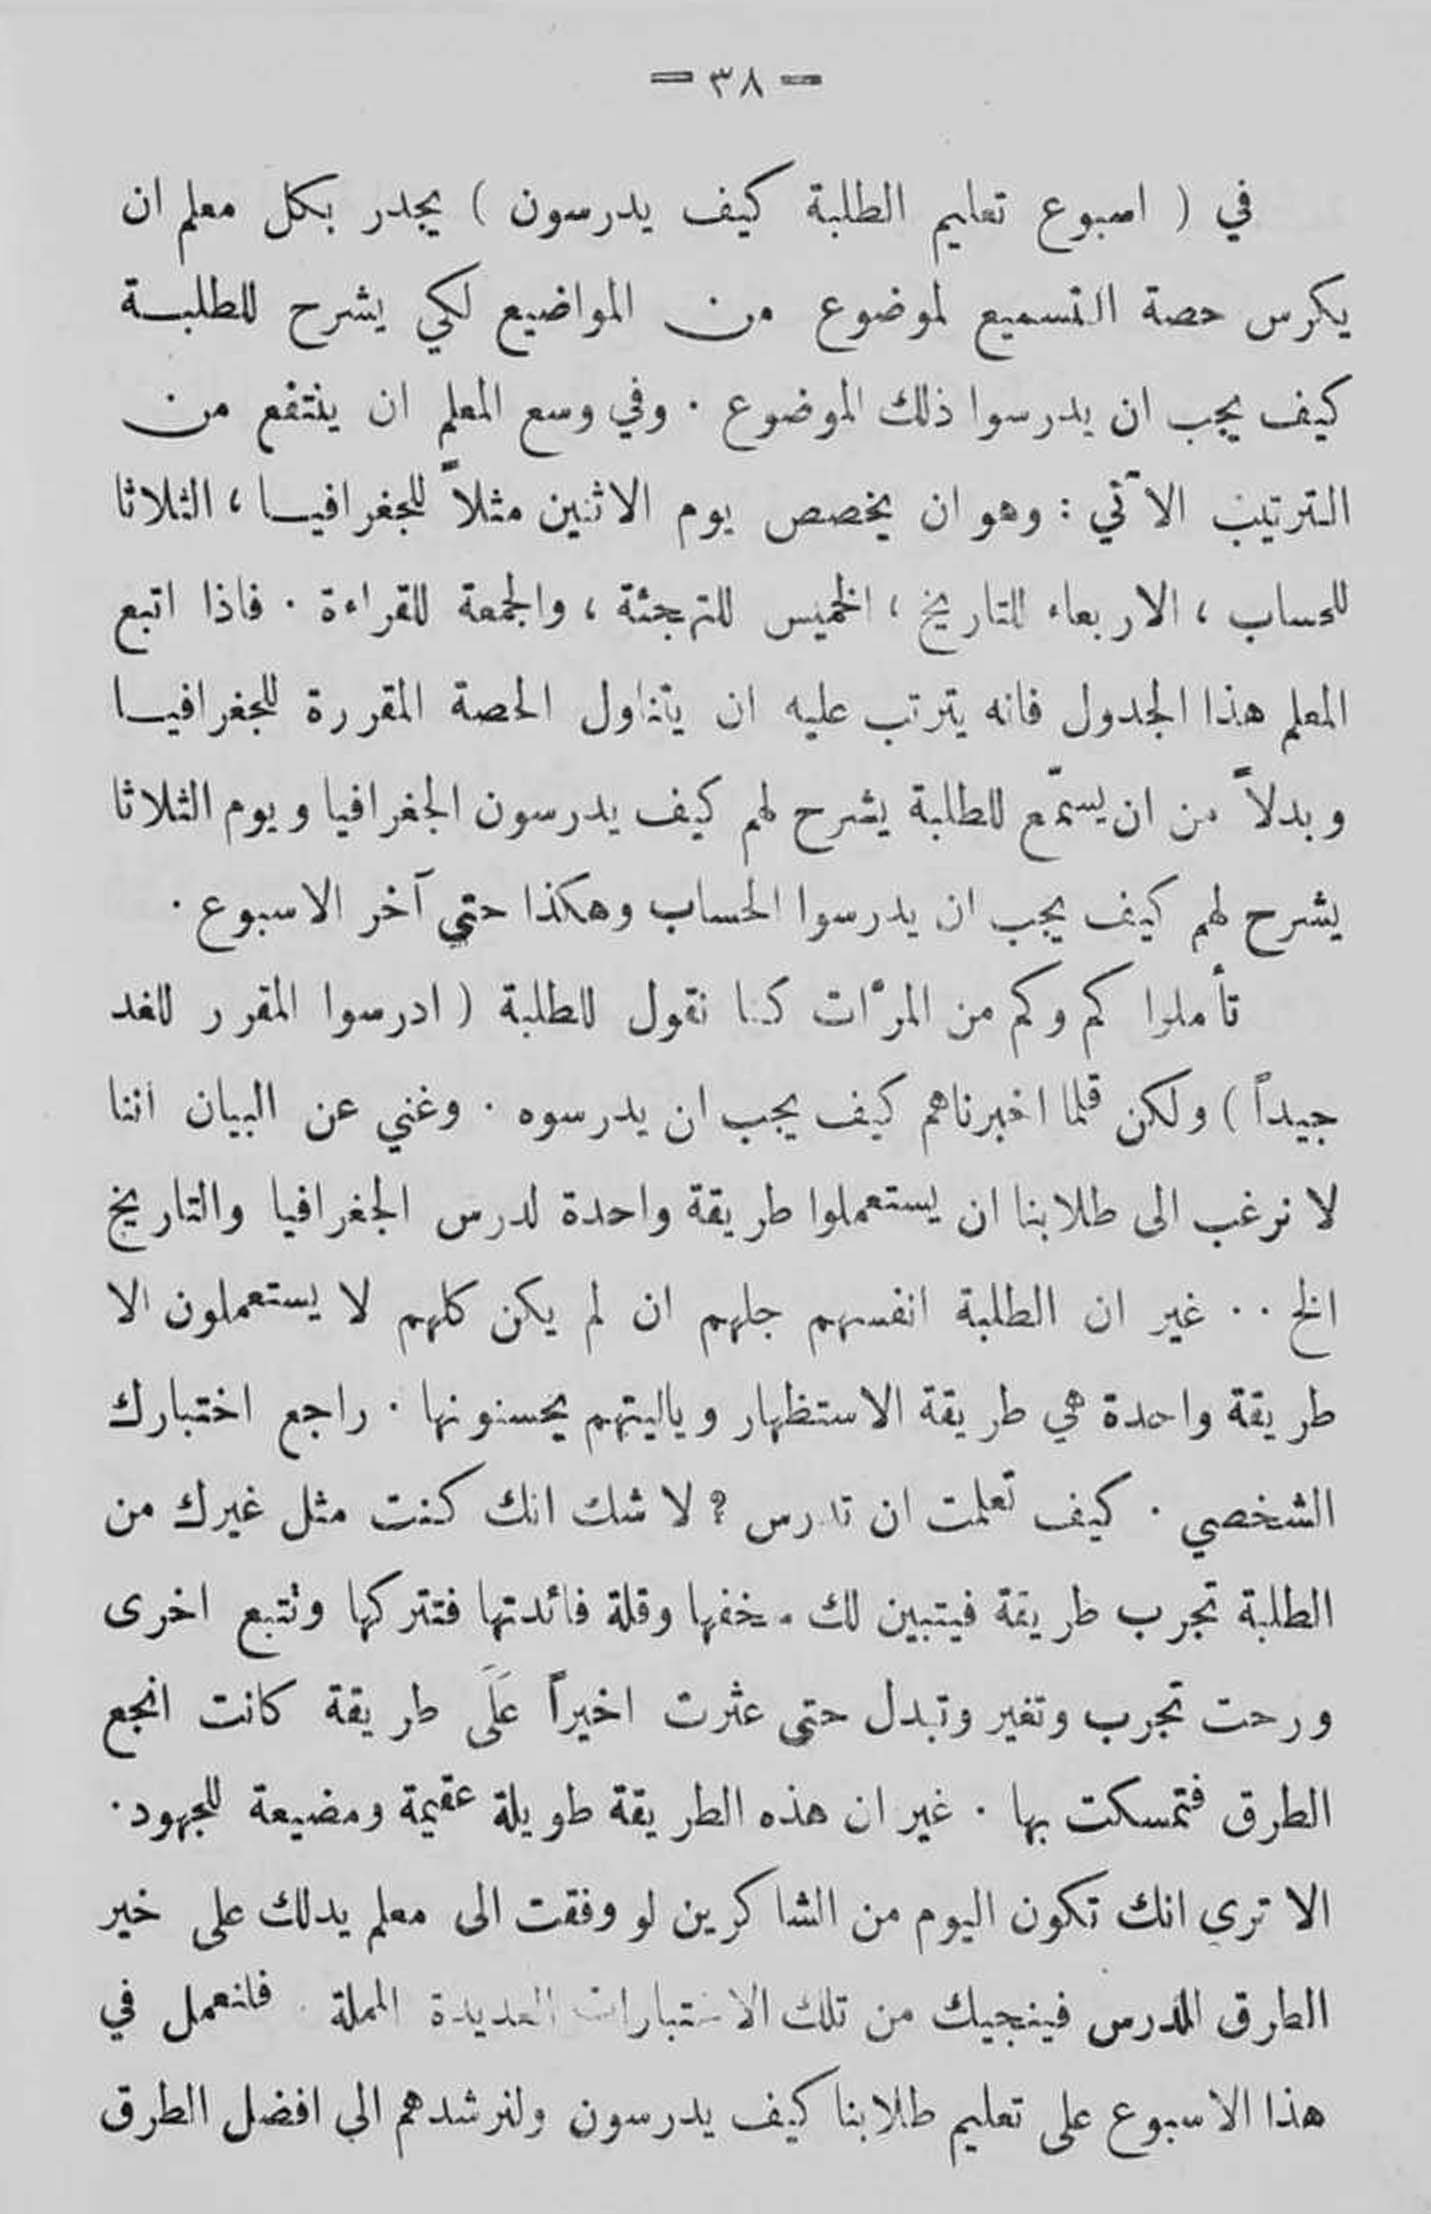 = ٣٨ =
في ( اسبوع تعليم الطلبة كيف يدرسون ) يجدر بكل معلم ان
يكرس حصة التسميع لموضوع من المواضيع لكي يشرح للطلبة
كيف يجب ان يدرسوا ذلك الموضوع . وفي وسع المعلم ان ينتفع من
الترتيب الآتي : وهو ان يخصص يوم الاثنين مثلاً للجغرافيا ، الثلاثا
للحساب ، الاربعاء للتاريخ ، الخميس للتهجئة ، والجمعة للقراءة . فاذا اتبع
المعلم هذا الجدول فانه يترتب عليه ان يتناول الحصة المقررة للجغرافيا
وبدلاً من ان يستمّع للطلبة يشرح لهم كيف يدرسون الجغرافيا ويوم الثلاثا
يشرح لهم كيف يجب ان يدرسوا الحساب وهكذا حتى آخر الاسبوع .
تأملوا كم وكم من المرّات كنا نقول للطلبة ( ادرسوا المقرر للغد
جيداً ) ولكن قلما اخبرناهم كيف يجب ان يدرسوه . وغني عن البيان اننا
لا نرغب الى طلابنا ان يستعملوا طريقة واحدة لدرس الجغرافيا والتاريخ
الخ . . غير ان الطلبة انفسهم جلهم ان لم يكن كلهم لا يستعملون الا
طريقة واحدة هي طريقة الاستظهار وياليتهم يحسنونها . راجع اختبارك
الشخصي . كيف تعلمت ان تدرس ؟ لا شك انك كنت مثل غيرك من
الطلبة تجرب طريقة فيتبين لك سخفها وقلة فائدتها فتتركها وتتبع اخرى
ورحت تجرب وتغير وتبدل حتى عثرت اخيراً عَلَى طريقة كانت انجع
الطرق فتمسكت بها . غير ان هذه الطريقة طويلة عقيمة ومضيعة للجهود .
الا ترى انك تكون اليوم من الشاكرين لو وفقت الى معلم يدلك على خير
الطرق للدرس فينجيك من تلك الاختبارات العديدة المملة . فلنعمل في
هذا الاسبوع على تعليم طلابنا كيف يدرسون ولنرشدهم الى افضل الطرق